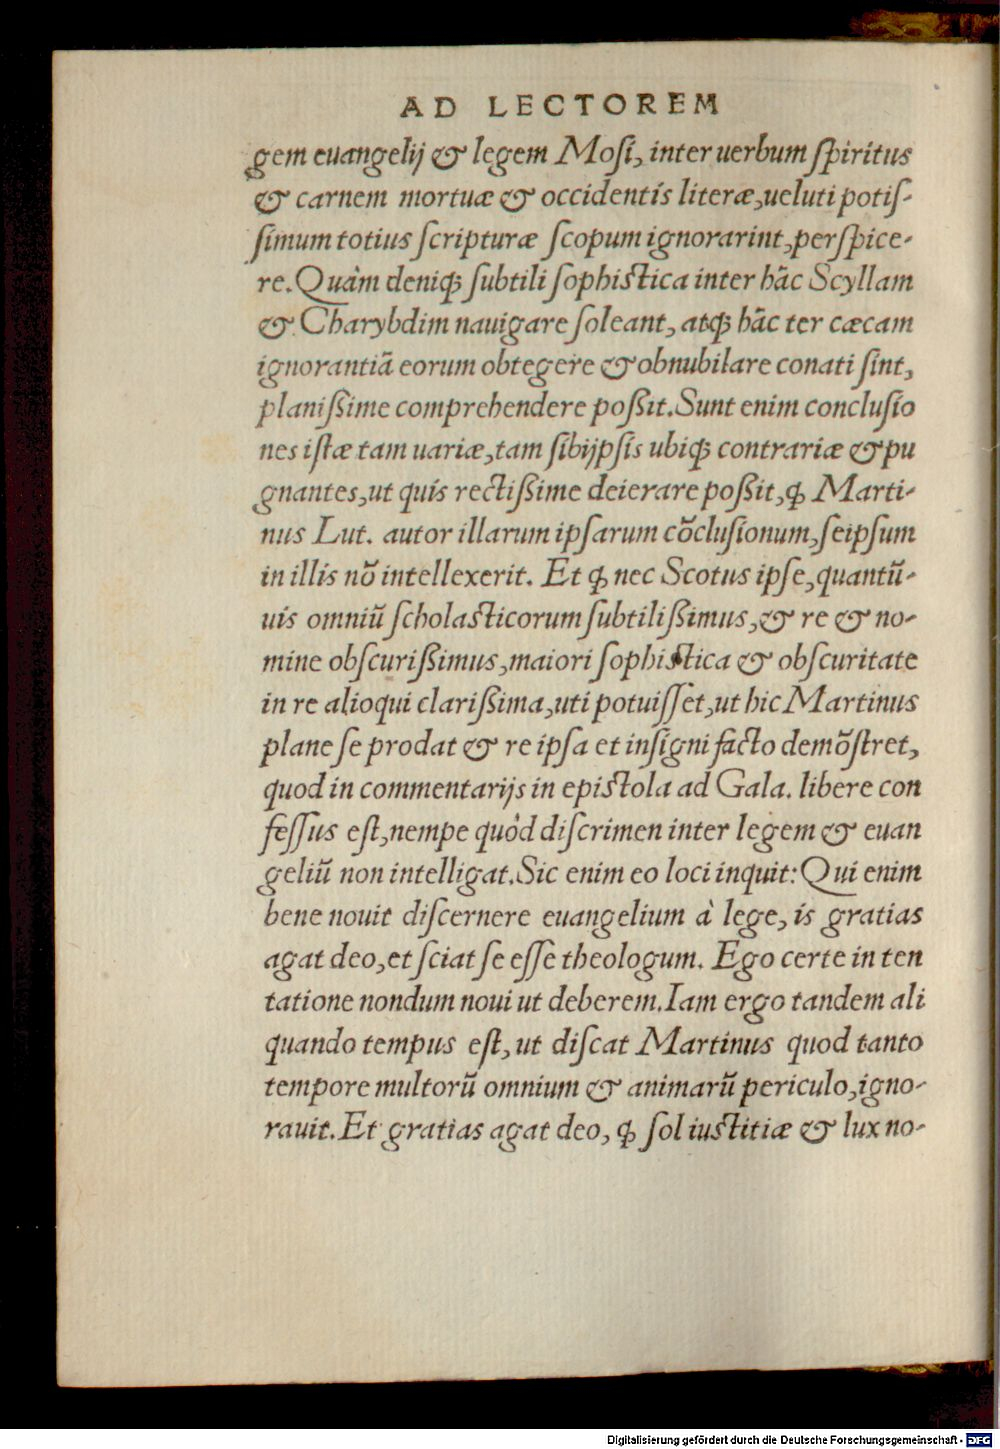 AD LECTOREM
gem euangelij & legem Mosi, inter uerbum spiritus
& carnem mortuæ & occidentis literæ, ueluti potis-
simum totius scripturæ scopum ignorarint, perspice-
re. Quàm deniqꝫ subtili sophistica inter hāc Scyllam
& Charybdim nauigare soleant, atqꝫ hāc ter cæcam
ignorantiā eorum obtegere & obnubilare conati sint,
planißime comprehendere poßit. Sunt enim conclusio
nes istæ tam uariæ, tam sibijpsis ubiqꝫ contrariæ & pu
gnantes, ut quis rectißime deierare poßit, ꝙ Marti-
nus Lut. autor illarum ipsarum cōclusionum, seipsum
in illis nō intellexerit. Et ꝙ nec Scotus ipse, quantū-
uis omniū scholasticorum subtilißimus, & re & no-
mine obscurißimus, maiori sophistica & obscuritate
in re alioqui clarißima, uti potuisset, ut hic Martinus
plane se prodat & re ipsa et insigni facto demōstret,
quod in commentarijs in epistola ad Gala. libere con
fessus est, nempe quòd discrimen inter legem & euan
geliū non intelligat. Sic enim eo loci inquit: Qui enim
bene nouit discernere euangelium à lege, is gratias
agat deo, et sciat se esse theologum. Ego certe in ten
tatione nondum noui ut deberem. Iam ergo tandem ali
quando tempus est, ut discat Martinus quod tanto
tempore multorū omnium & animarū periculo, igno-
rauit. Et gratias agat deo, ꝙ sol iustitiæ & lux no-
Digitalisierung gefördert durch die Deutsche Forschungsgemeinschaft - DFG